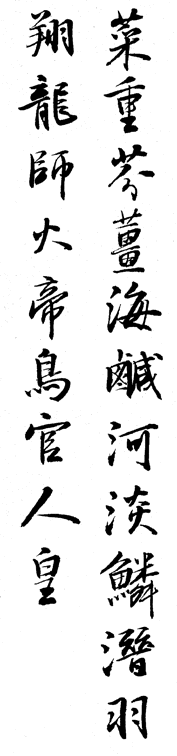 菜重芥薑海鹹河淡鱗潛羽
翔龍師火帝鳥官人皇